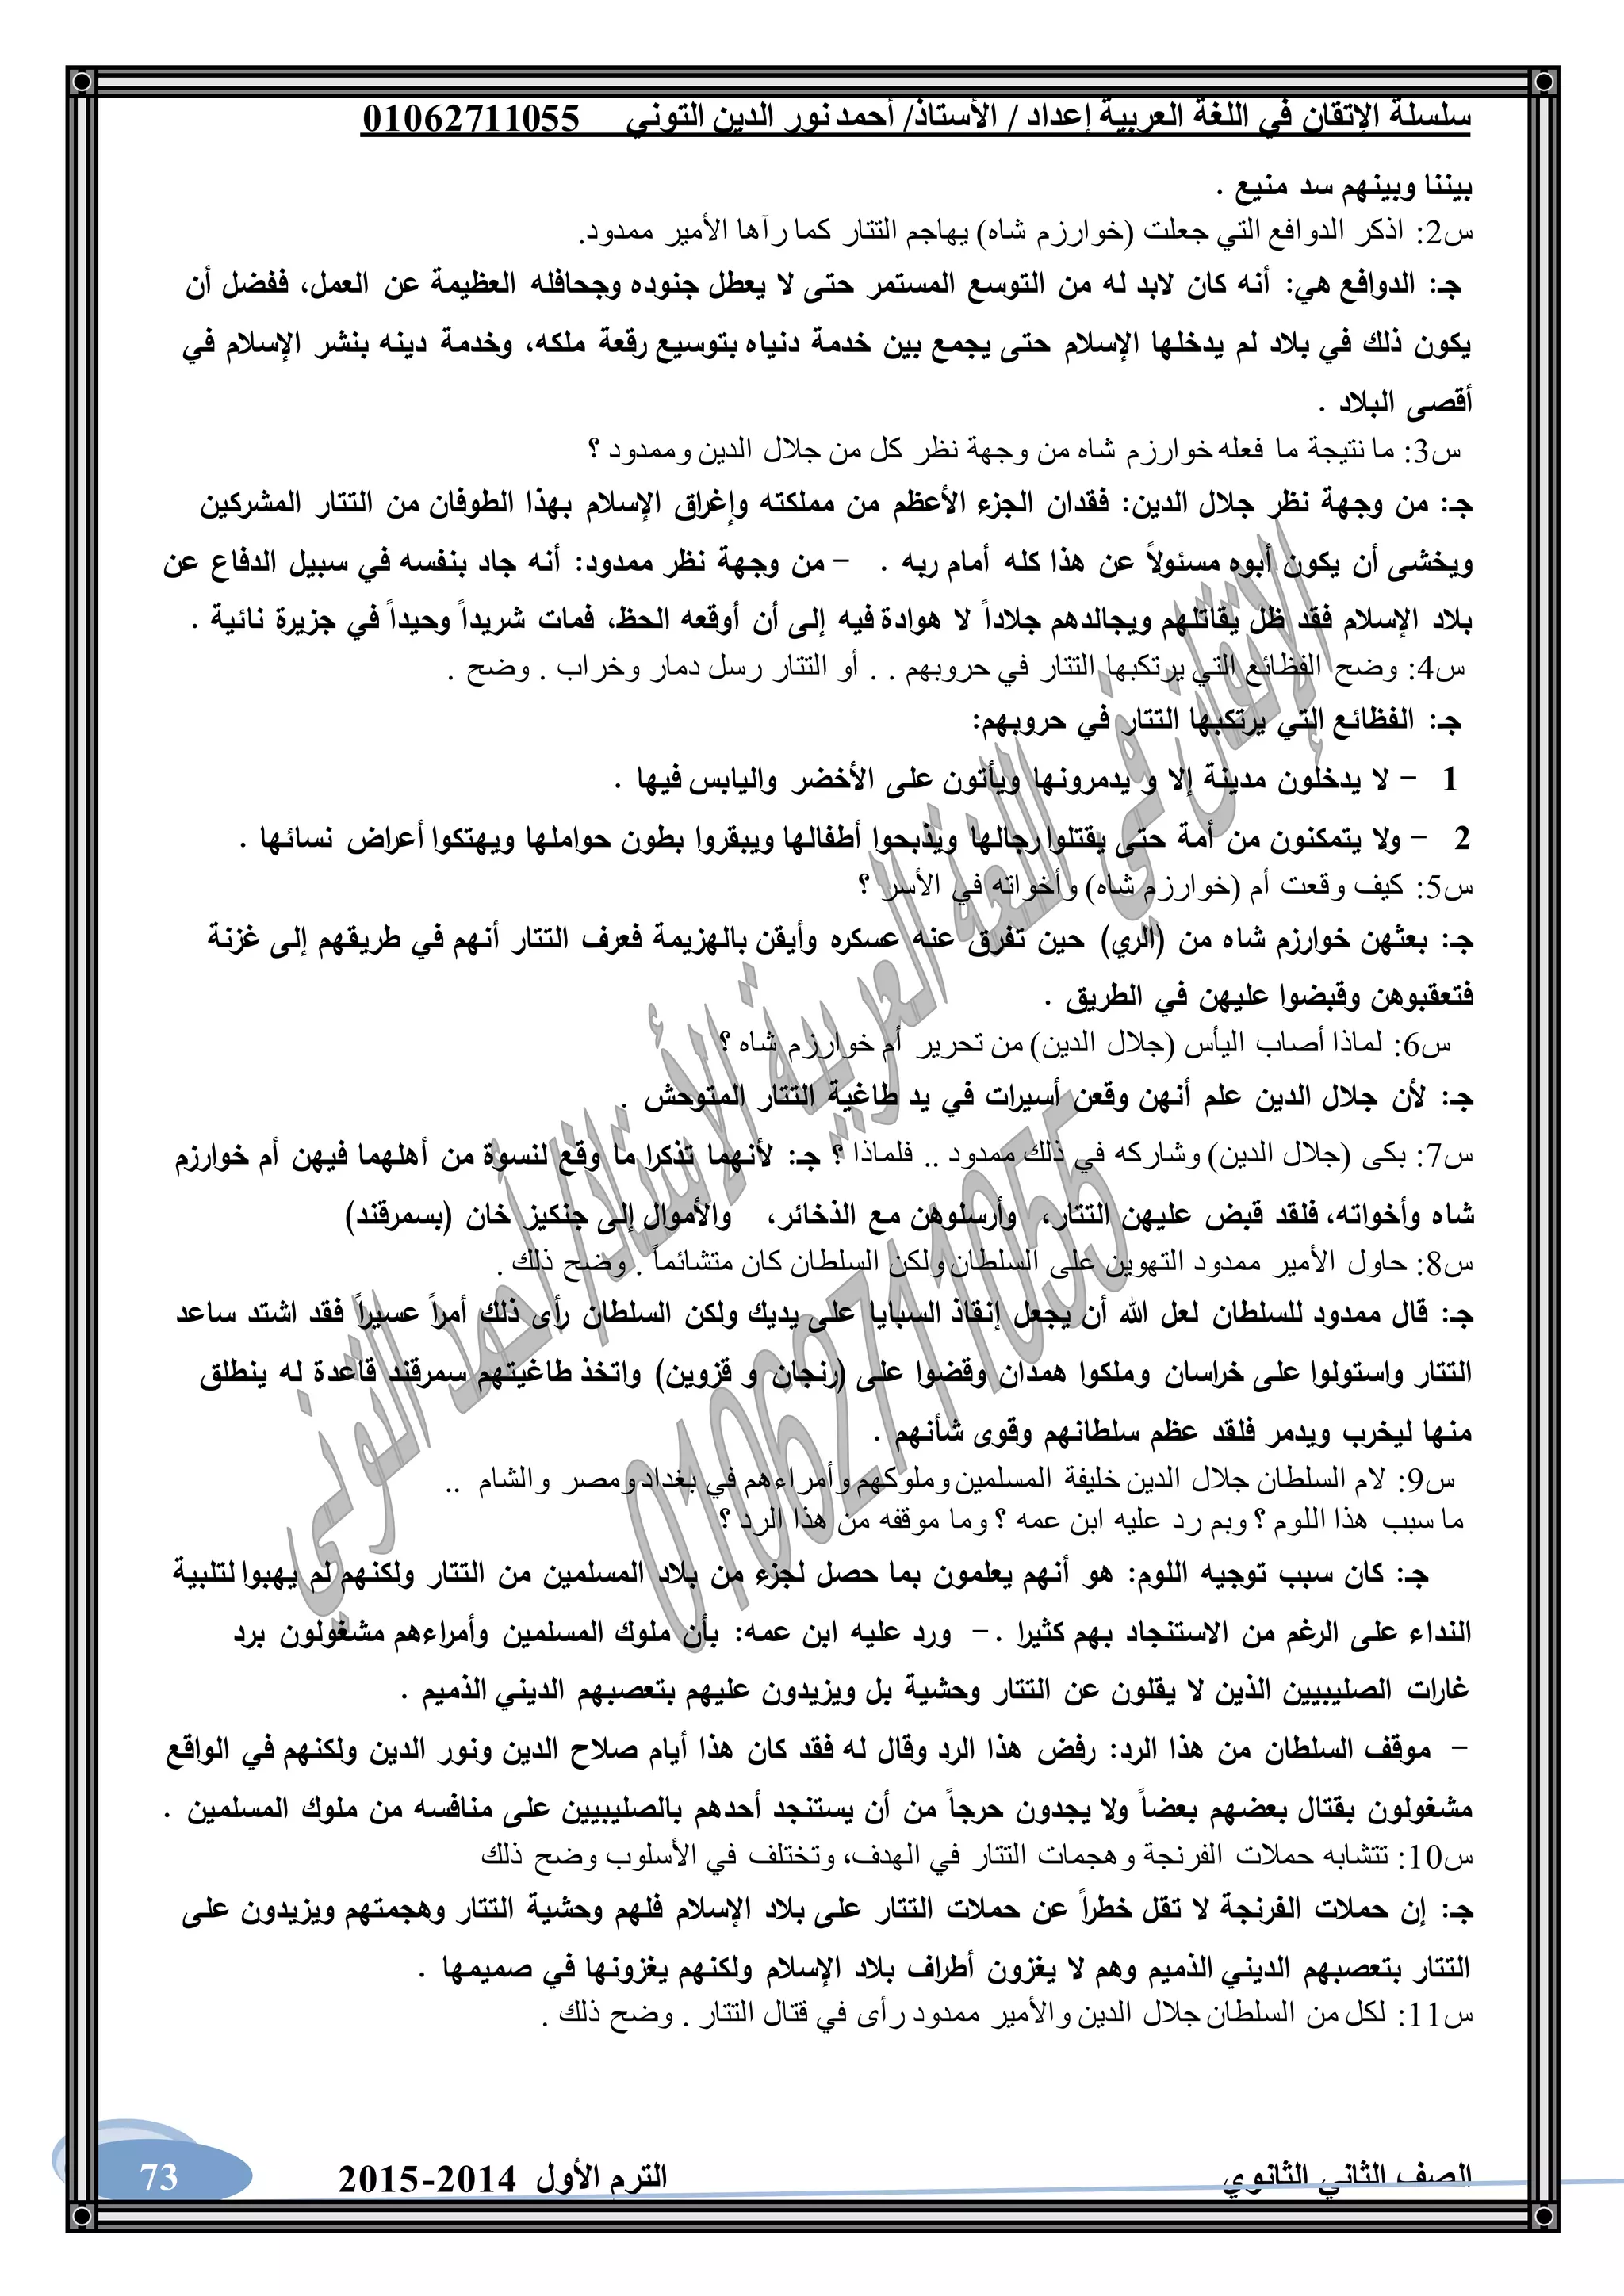 سلسلة الإتقان في اللغة العربية إعداد / الأستاذ/ أحمد نور الدين التوني 01062711055
بيننا وبينهم سد منيع .
س2: اذكر الدوافع التي جعلت (خوارزم شاه) يهاجم التتار كما رآها الأمير ممدود.
جـ: الدوافع هي: أنه كان لابد له من التوسع المستمر حتى لا يعطل جنوده وجحافله العظيمة عن العمل، ففضل أن
يكون ذلك في بلاد لم يدخلها الإسلام حتى يجمع بين خدمة دنياه بتوسيع رقعة ملكه، وخدمة دينه بنشر الإسلام في
أقصى البلاد .
س3: ما نتيجة ما فعله خوارزم شاه من وجهة نظر كل من جلال الدين وممدود ؟
جـ: من وجهة نظر جلال الدين: فقدان الجزء الأعظم من مملكته وإغراق الإسلام بهذا الطوفان من التتار المشركين
ويخشى أن يكون أبوه مسئولاً عن هذا كله أمام ربه . - من وجهة نظر ممدود: أنه جاد بنفسه في سبيل الدفاع عن
بلاد الإسلام فقد ظل يقاتلهم ويجالدهم جلاداً لا هوادة فيه إلى أن أوقعه الحظ، فمات شريداً وحيداً في جزيرة نائية .
س4: وضح الفظائع التي يرتكبها التتار في حروبهم . . أو التتار رسل دمار وخراب . وضح .
جـ: الفظائع التي يرتكبها التتار في حروبهم:
1 - لا يدخلون مدينة إلا و يدمرونها ويأتون على الأخضر واليابس فيها .
2 - ولا يتمكنون من أمة حتى يقتلوا رجالها ويذبحوا أطفالها ويبقروا بطون حواملها ويهتكوا أعراض نسائها .
س5: كيف وقعت أم (خوارزم شاه) وأخواته في الأسر ؟
جـ: بعثهن خوارزم شاه من (الري) حين تفرق عنه عسكره وأيقن بالهزيمة فعرف التتار أنهم في طريقهم إلى غزنة
فتعقبوهن وقبضوا عليهن في الطريق .
س6: لماذا أصاب اليأس (جلال الدين) من تحرير أم خوارزم شاه ؟
جـ: لأن جلال الدين علم أنهن وقعن أسيرات في يد طاغية التتار المتوحش .
س7: بكى (جلال الدين) وشاركه في ذلك ممدود .. فلماذا ؟ جـ: لأنهما تذكرا ما وقع لنسوة من أهلهما فيهن أم خوارزم
شاه وأخواته، فلقد قبض عليهن التتار، وأرسلوهن مع الذخائر، والأموال إلى جنكيز خان (بسمرقند)
س8: حاول الأمير ممدود التهوين على السلطان ولكن السلطان كان متشائماً . وضح ذلك .
جـ: قال ممدود للسلطان لعل الله أن يجعل إنقاذ السبايا على يديك ولكن السلطان رأى ذلك أمراً عسيراً فقد اشتد ساعد
التتار واستولوا على خراسان وملكوا همدان وقضوا على (رنجان و قزوين) واتخذ طاغيتهم سمرقند قاعدة له ينطلق
منها ليخرب ويدمر فلقد عظم سلطانهم وقوى شأنهم .
س9: لام السلطان جلال الدين خليفة المسلمين وملوكهم وأمراءهم في بغداد ومصر والشام ..
ما سبب هذا اللوم ؟ وبم رد عليه ابن عمه ؟ وما موقفه من هذا الرد ؟
جـ: كان سبب توجيه اللوم: هو أنهم يعلمون بما حصل لجزء من بلاد المسلمين من التتار ولكنهم لم يهبوا لتلبية
النداء على الرغم من الاستنجاد بهم كثيرا . - ورد عليه ابن عمه: بأن ملوك المسلمين وأمراءهم مشغولون برد
غارات الصليبيين الذين لا يقلون عن التتار وحشية بل ويزيدون عليهم بتعصبهم الديني الذميم .
- موقف السلطان من هذا الرد: رفض هذا الرد وقال له فقد كان هذا أيام صلاح الدين ونور الدين ولكنهم في الواقع
مشغولون بقتال بعضهم بعضاً ولا يجدون حرجاً من أن يستنجد أحدهم بالصليبيين على منافسه من ملوك المسلمين .
س10: تتشابه حملات الفرنجة وهجمات التتار في الهدف، وتختلف في الأسلوب وضح ذلك
جـ: إن حملات الفرنجة لا تقل خطراً عن حملات التتار على بلاد الإسلام فلهم وحشية التتار وهجمتهم ويزيدون على
التتار بتعصبهم الديني الذميم وهم لا يغزون أطراف بلاد الإسلام ولكنهم يغزونها في صميمها .
س11: لكل من السلطان جلال الدين والأمير ممدود رأى في قتال التتار . وضح ذلك .
الإتقان في اللغة العربية الأستاذ/ أحمد التوني
01062711055
الصف الثاني الثانوي الترم الأول 2014-2015 73